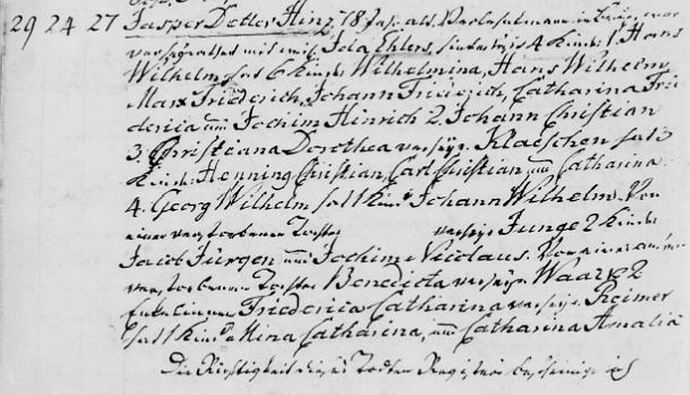 29 24 27 Jasper Detlef Hinz, 78 Jahr alt, Verlehntsmann in war
verheyrathet mit Ida Ehlers, hinterließ 4 Kinder 1. Hans
Wilhelm, hat 6 Kinder Wilhelmina, Hans Wilhelm,
Marx Friederich, Johann Friederich, Catharina Frie
dericia und Jochim Hinrich 2. Johann Christian
3. Christiana Dorothea verheyr. Klaeschen hat 3
Kinder Henning Christian, Carl Christian und Catharina
4. Georg Wilhelm hat 1 Kind Johann Wilhelm. Von
einer verstorbenen Tochter verheyr. Junge 2 Kinder
Jacob Jürgen und Jochim Nicolaus. Von einer andern
verstorbenen Tochter Benedicta verheyr. Waack 2
Enkelinnen Friedericia Catharina verheyr. Reimer
hat 1 Kind Mina Catharina, und Catharina Amalia
Die Richtigkeit dieses Todten Registers bescheinige ich